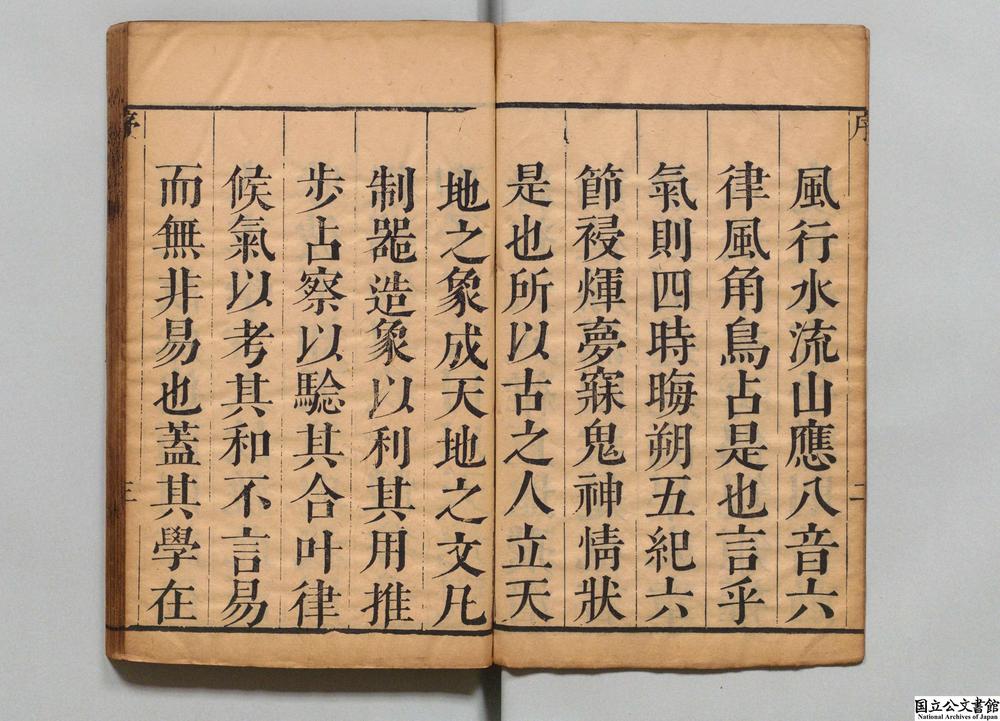 序
二
風行水流山應八音六
律風角鳥占是也言乎
氣則四時晦朔五紀六
節祲煇夢寐鬼神情狀
是也所以古之人立天
地之象成天地之文凡
制器造象以利其用推
步占察以驗其合叶律
候氣以考其和不言易
而無非易也蓋其學在
序
三
国立公文書館
National Archives of Japan